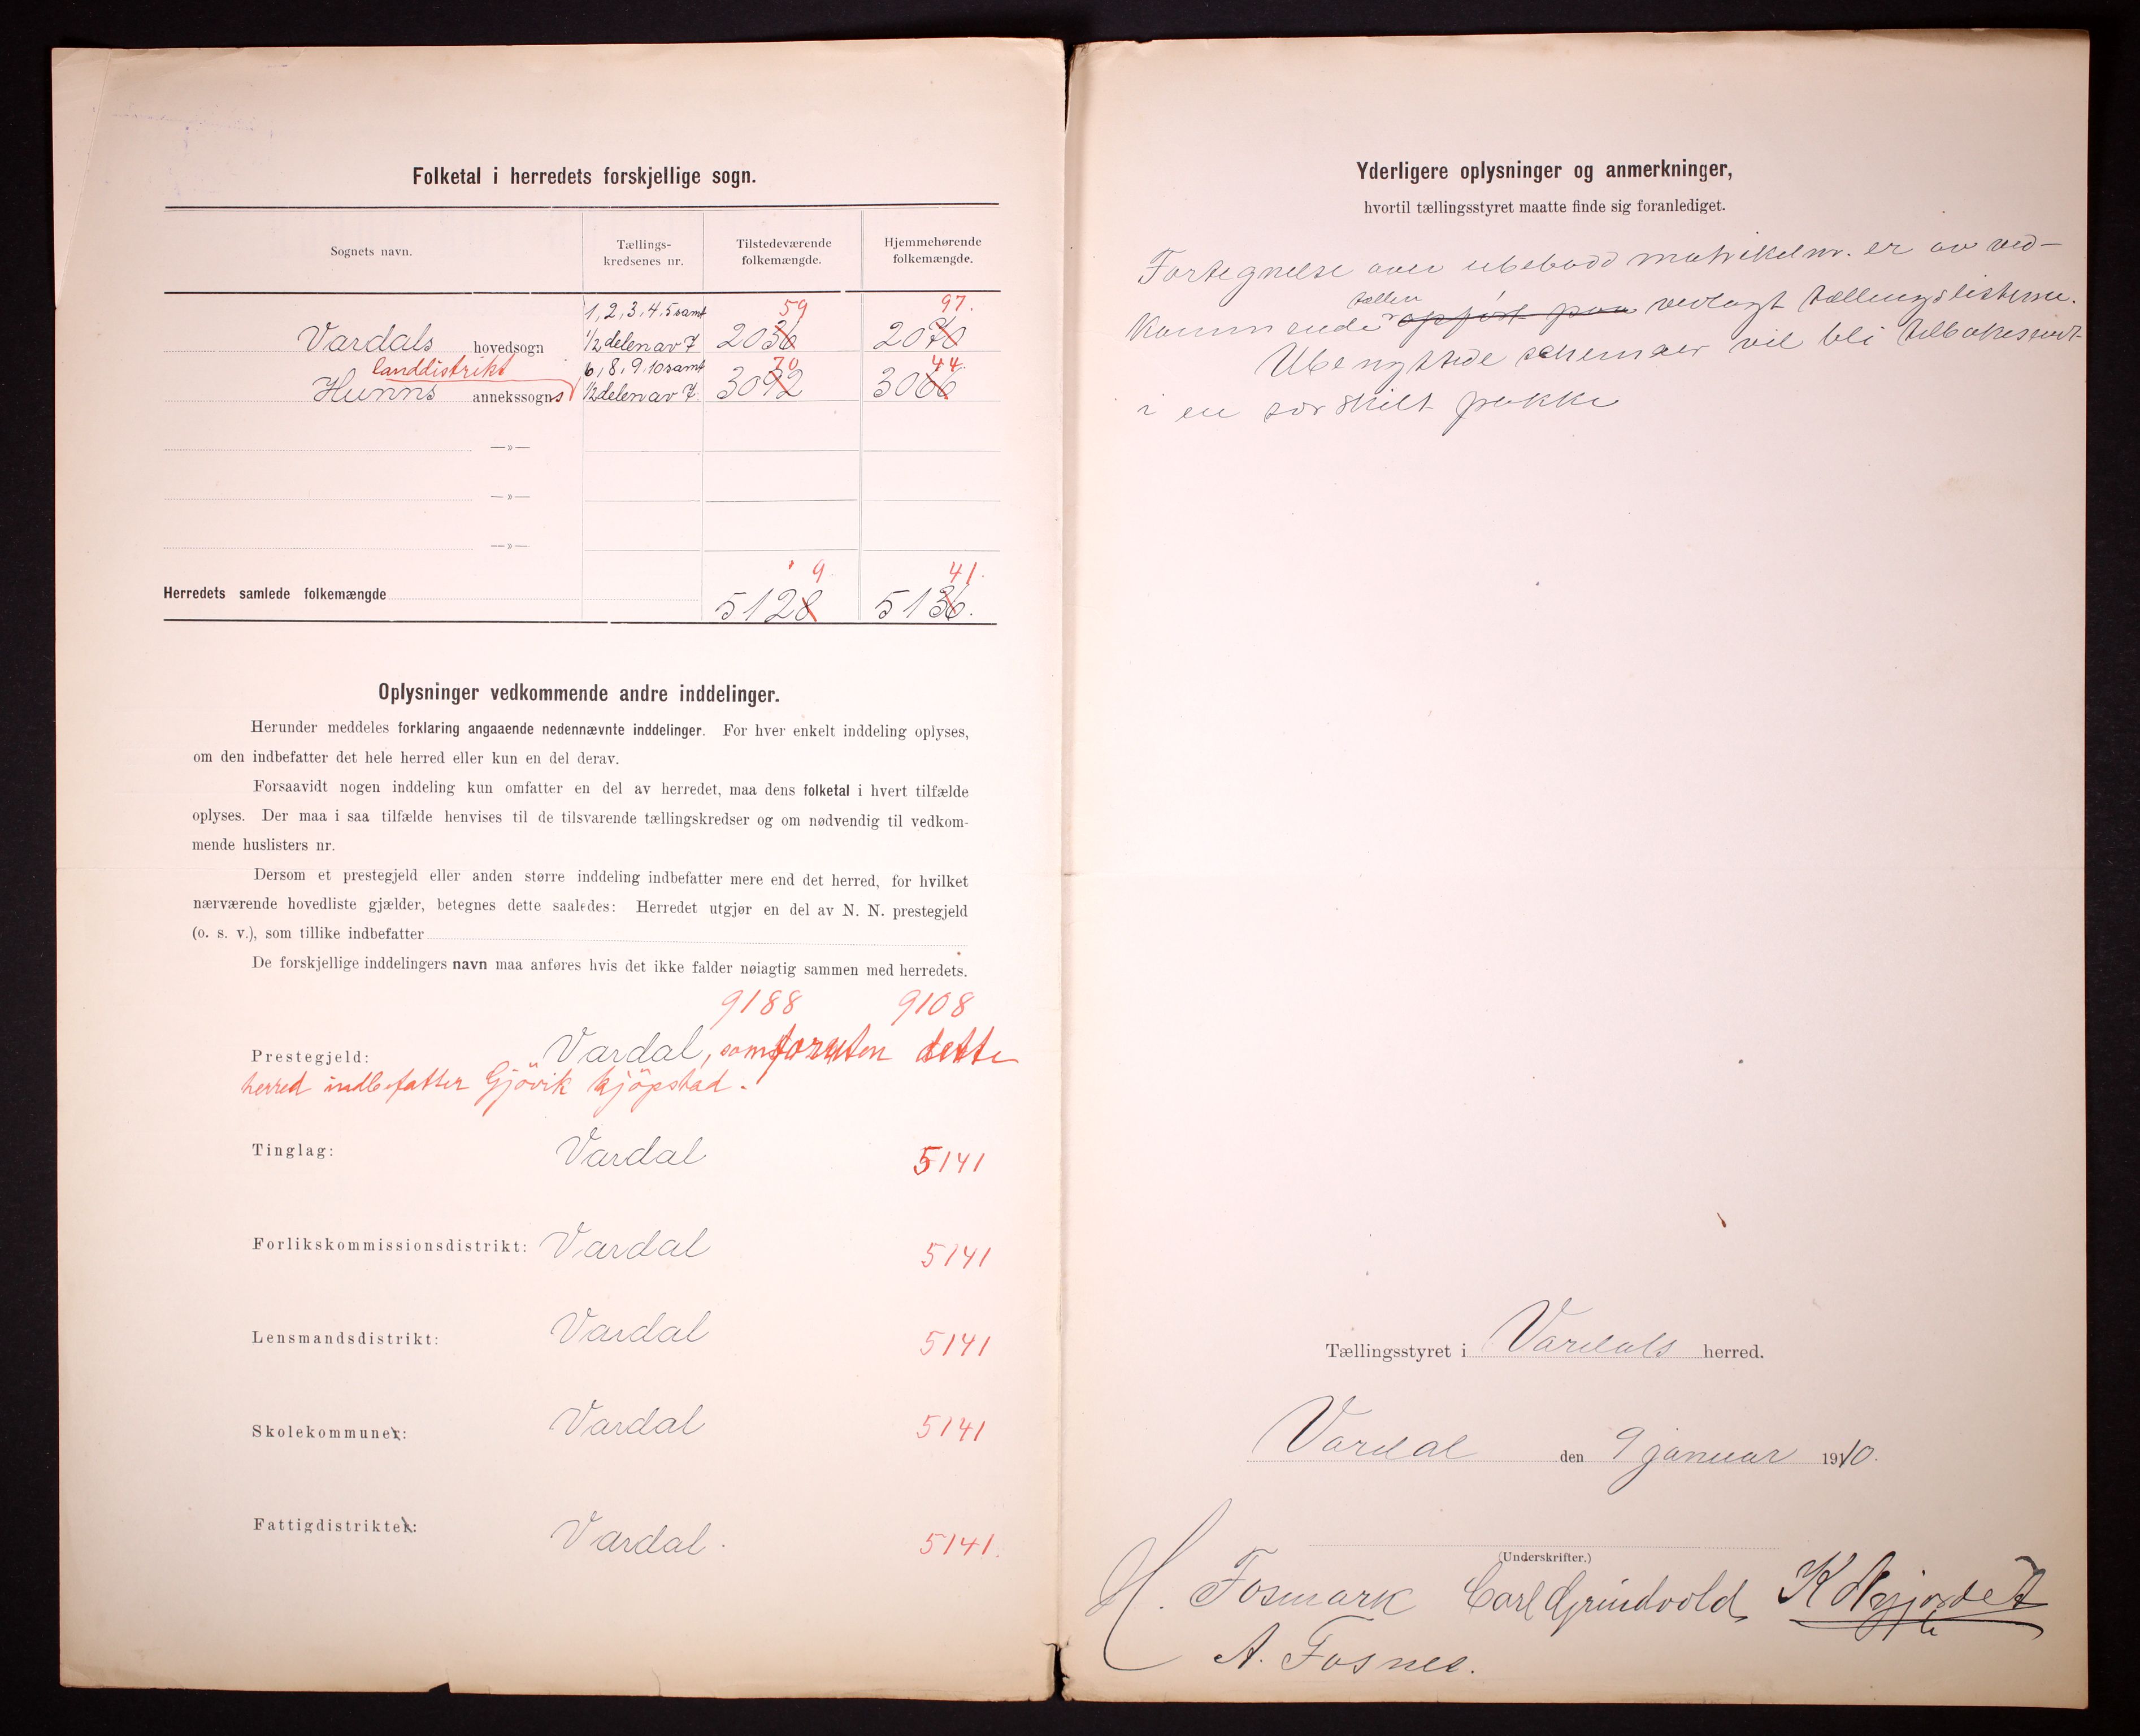 Folketal i herredets forskjellige sogn.
Sognets navn.
Tællings-
kredsenes nr.
Tilstedeværende
folkemængde.
Hjemmehørende
folkemængde.
1, 2, 3, 4, 5 samt 59 97.
Vardals hovedsogn 1/2 delen av 7 2036 2070
landdistrikt 6, 8, 9, 10 samt 70 44.
Hunns annekssogns 1/2 delen av 7. 3092 3066
—»—
—»—
—»—
9 41.
Herredets samlede folkemængde 5128 5136.
Oplysninger vedkommende andre inddelinger.
Herunder meddeles forklaring angaaende nedennævnte inddelinger. For hver enkelt inddeling oplyses,
om den indbefatter det hele herred eller kun en del derav.
Forsaavidt nogen inddeling kun omfatter en del av herredet, maa dens folketal i hvert tilfælde
oplyses. Der maa i saa tilfælde henvises til de tilsvarende tællingskredser og om nødvendig til vedkom-
mende huslisters nr.
Dersom et prestegjeld eller anden større inddeling indbefatter mere end det herred, for hvilket
nærværende hovedliste gjælder, betegnes dette saaledes: Herredet utgjør en del av N. N. prestegjeld
(o. s. v.), som tillike indbefatter
De forskjellige inddelingers navn maa anføres hvis det ikke falder nøiagtig sammen med herredets.
9188 9108
Prestegjeld: Vardal, som foruten dette
herred indbefatter Gjövik kjöpstad.
Tinglag: Vardal 5141
Forlikskommissionsdistrikt: Vardal 5141
Lensmandsdistrikt: Vardal 5141
Skolekommuner: Vardal 5141
Fattigdistrikter: Vardal. 5141.
Yderligere oplysninger og anmerkninger,
hvortil tællingsstyret maatte finde sig foranlediget.
Fortegnelse over ubebodd matrikelnr. er av ved-
tæller
kommende opført paa vedlagt tællingslisterne.
Ubenyttede schemaer vil bli tilbakesendt
i en særskilt pakke
Tællingsstyret i Vardals herred.
Vardal den 9 januar 1910.
(Underskrifter.)
H. Fosmark Carl Grindvold
A. Fosnes.